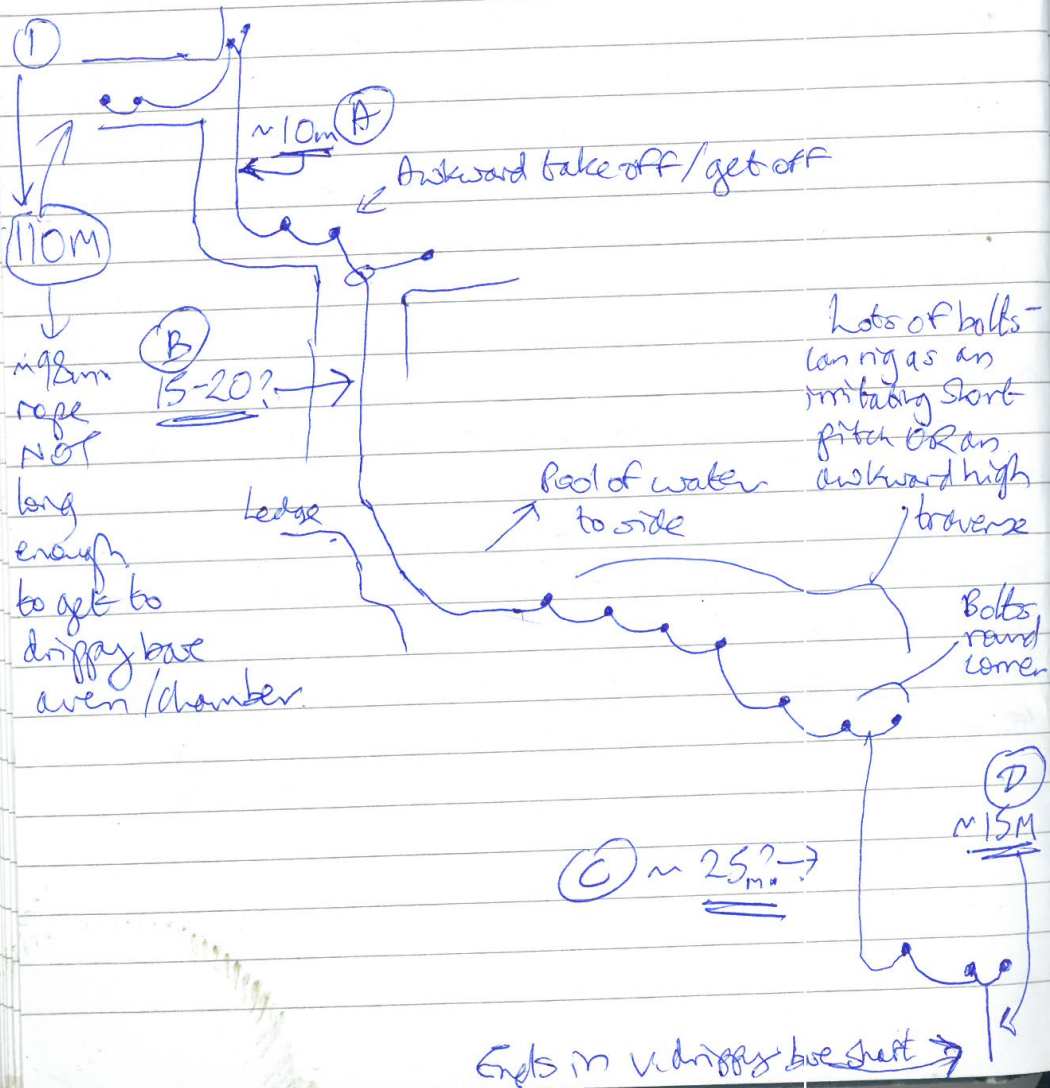 1
~10m A
Awkward take off/get off
110M
~98m
rope
NOT
long
enough
to get to
drippy base
aven/chamber.
B
15-20?
Ledge
Pool of water
to side
Lots of bolts-
can rig as an
irritating short
pitch OR an
awkward high
traverse
Bolts
round
corner
C ~ 25m?
D
~15M
Ends in v. drippy base shaft